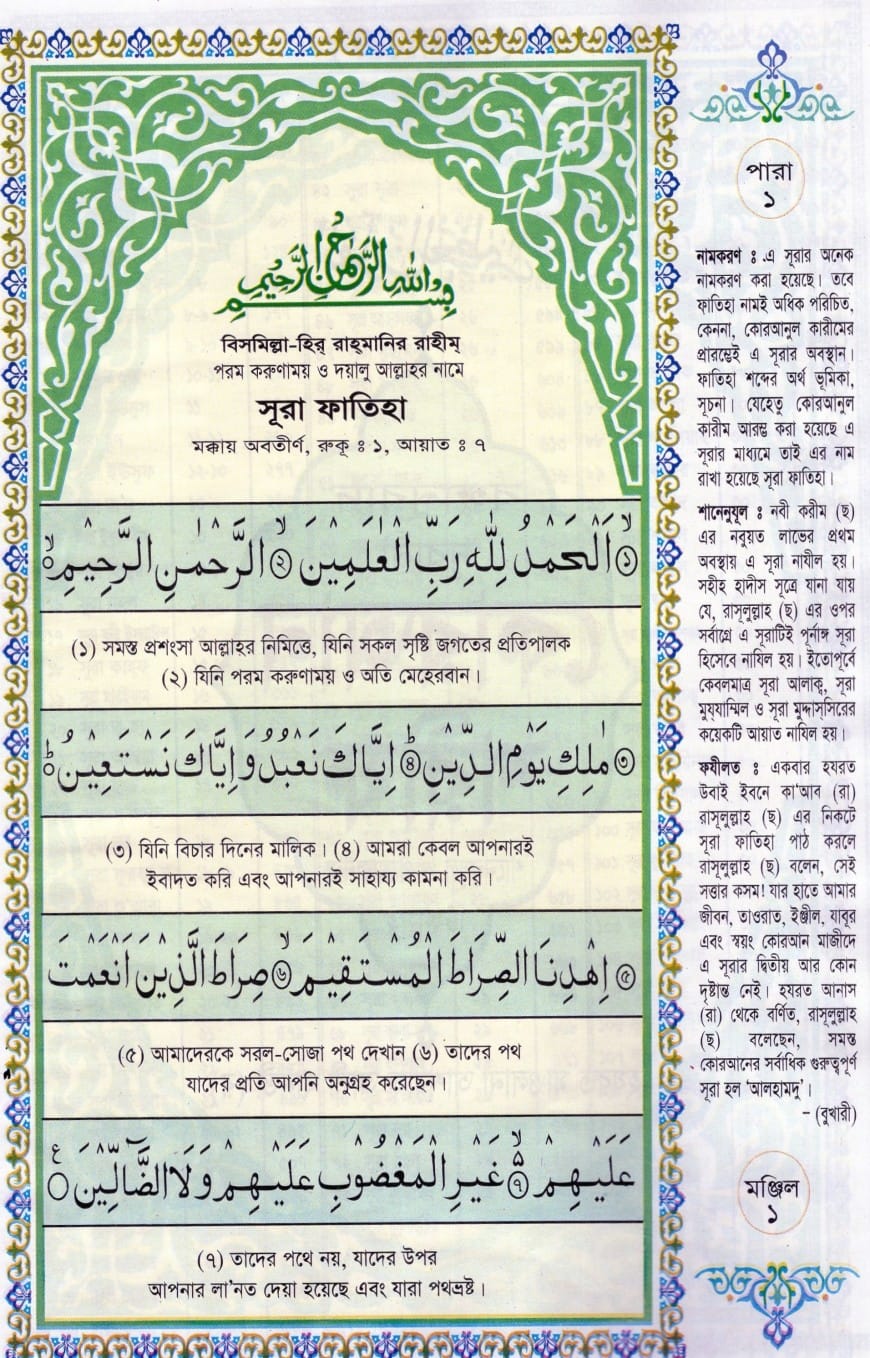 بسم الله الرحمن الرحيم
বিসমিল্লা-হির্ রাহ্মানির রাহীম্
পরম করুণাময় ও দয়ালু আল্লাহর নামে
সূরা ফাতিহা
মক্কায় অবতীর্ণ, রুকূ ঃ ১, আয়াত ঃ ৭
১ اَلْحَمْدُ لِلّٰهِ رَبِّ الْعٰلَمِيْنَ ۙ ২ الرَّحْمٰنِ الرَّحِيْمِ ۙ
(১) সমস্ত প্রশংসা আল্লাহর নিমিত্তে, যিনি সকল সৃষ্টি জগতের প্রতিপালক
(২) যিনি পরম করুণাময় ও অতি মেহেরবান।
৩ مٰلِكِ يَوْمِ الدِّيْنِ ؕ ৪ اِيَّاكَ نَعْبُدُ وَاِيَّاكَ نَسْتَعِيْنُ ؕ
(৩) যিনি বিচার দিনের মালিক। (৪) আমরা কেবল আপনারই
ইবাদত করি এবং আপনারই সাহায্য কামনা করি।
৫ اِهْدِنَا الصِّرَاطَ الْمُسْتَقِيْمَ ۙ ৬ صِرَاطَ الَّذِيْنَ اَنْعَمْتَ
(৫) আমাদেরকে সরল-সোজা পথ দেখান (৬) তাদের পথ
যাদের প্রতি আপনি অনুগ্রহ করেছেন।
عَلَيْهِمْ ۙ ৭ غَيْرِ الْمَغْضُوْبِ عَلَيْهِمْ وَلَا الضَّآلِّيْنَ ع
(৭) তাদের পথে নয়, যাদের উপর
আপনার লা'নত দেয়া হয়েছে এবং যারা পথভ্রষ্ট।
পারা
১
নামকরণ ঃ এ সূরার অনেক
নামকরণ করা হয়েছে। তবে
ফাতিহা নামই অধিক পরিচিত,
কেননা, কোরআনুল কারীমের
প্রারম্ভেই এ সূরার অবস্থান।
ফাতিহা শব্দের অর্থ ভূমিকা,
সূচনা। যেহেতু কোরআনুল
কারীম আরম্ভ করা হয়েছে এ
সূরার মাধ্যমে তাই এর নাম
রাখা হয়েছে সূরা ফাতিহা।
শানেনুযূল ঃ নবী করীম (ছ)
এর নবুয়ত লাভের প্রথম
অবস্থায় এ সূরা নাযীল হয়।
সহীহ হাদীস সূত্রে যানা যায়
যে, রাসূলুল্লাহ (ছ) এর ওপর
সর্বাগ্রে এ সূরাটিই পূর্ণাঙ্গ সূরা
হিসেবে নাযিল হয়। ইতোপূর্বে
কেবলমাত্র সূরা আলাক্, সূরা
মুয্যাম্মিল ও সূরা মুদ্দাস্সিরের
কয়েকটি আয়াত নাযিল হয়।
ফযীলত ঃ একবার হযরত
উবাই ইবনে কা'আব (রা)
রাসূলুল্লাহ (ছ) এর নিকটে
সূরা ফাতিহা পাঠ করলে
রাসূলুল্লাহ (ছ) বলেন, সেই
সত্তার কসম! যার হাতে আমার
জীবন, তাওরাত, ইঞ্জীল, যাবূর
এবং স্বয়ং কোরআন মাজীদে
এ সূরার দ্বিতীয় আর কোন
দৃষ্টান্ত নেই। হযরত আনাস
(রা) থেকে বর্ণিত, রাসূলুল্লাহ
(ছ) বলেছেন, সমস্ত
কোরআনের সর্বাধিক গুরুত্বপূর্ণ
সূরা হল ‘আলহামদু’।
– (বুখারী)
মঞ্জিল
১